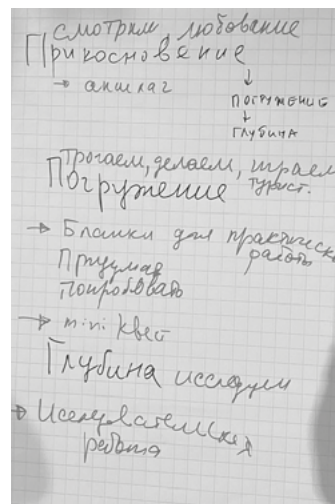 смотрим, любование
Прикосновение
→ аншлаг
↓
ПОГРУЖЕНИЕ
↓
ГЛУБИНА
Трогаем, делаем, играем
Погружение турист.
→ Бланки для практическ
работы
Придумать
попробовать
→ mini квест
Глубина исследуем
→ Исследовательская
работа